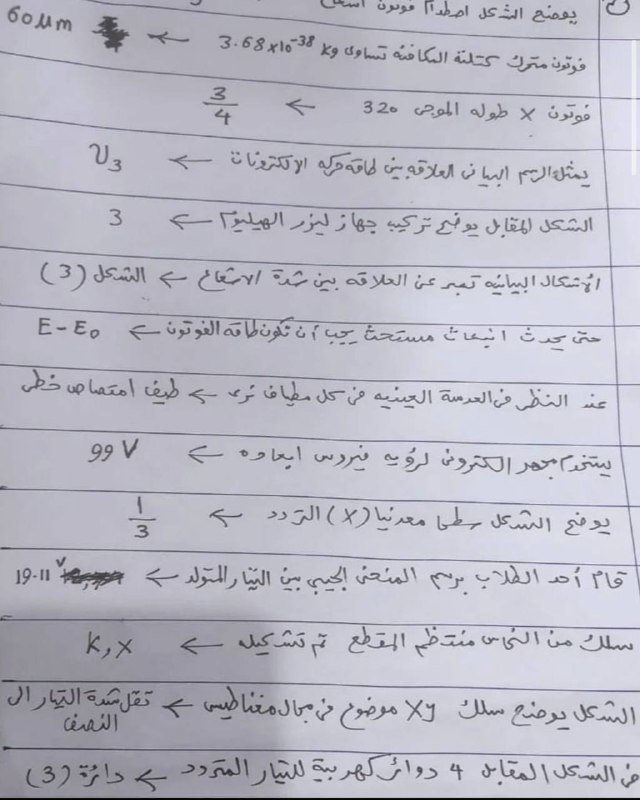 يوضح الشكل اصطدام فوتون
فوتون متحرك كتلته المكافئه تساوى 3.68x10⁻³⁸ kg ← 60 µm
فوتون x طوله الموجى 320 ← 3/4
يمثل الرسم البيانى العلاقه بين طاقه حركه الالكترونات ← v₃
الشكل المقابل يوضح تركيب جهاز ليزر الهيليوم ← 3
الاشكال البيانيه تعبر عن العلاقه بين شدة الاشعاع ← الشكل (3)
حتى يحدث انبعاث مستحث يجب أن تكون طاقه الفوتون ← E-E₀
عند النظر فى العدسة العينيه فى كل مطياف نرى ← طيف امتصاص خطى
يستخدم مجهر الكترونى لرؤيه فيروس ابعاده ← 99 V
يوضح الشكل سطحا معدنيا (x) التردد ← 1/3
قام أحد الطلاب برسم المنحنى الجيبى بين التيار المتولد ← 19.11 V
سلك من النحاس منتظم المقطع تم تشكيله ← K, x
الشكل يوضح سلك xy موضوع فى مجال مغناطيس ← تقل شدة التيار الى
النصف
فى الشكل المقابل 4 دوائر كهربية للتيار المتردد ← دائرة (3)